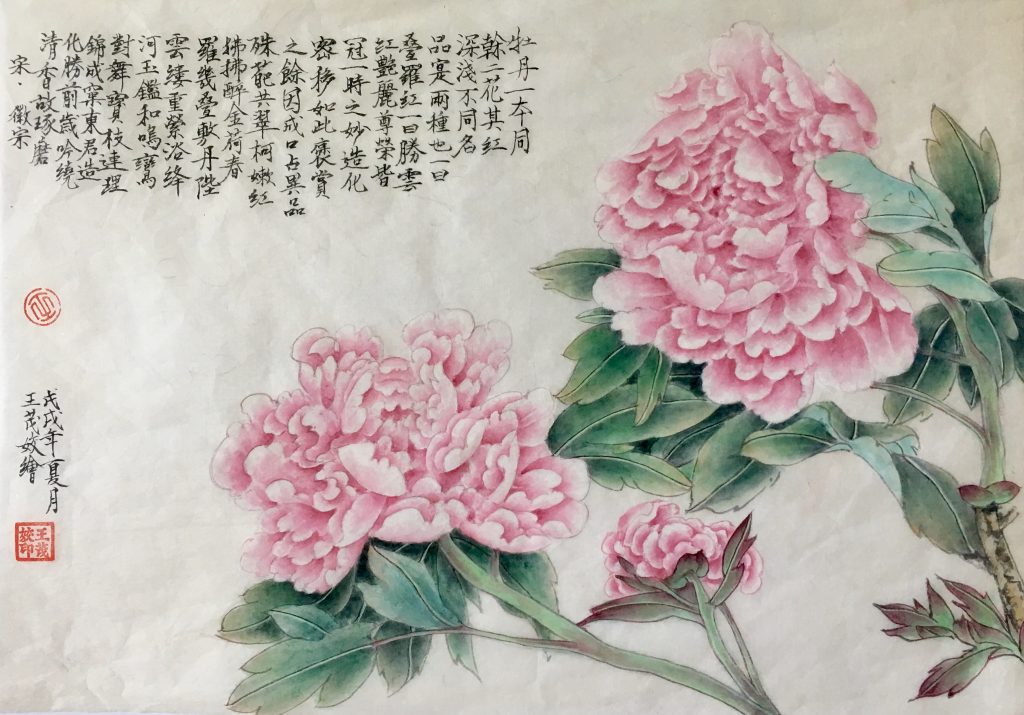 牡丹一本同
榦二花其紅
深淺不同名
品寔兩種也一曰
疊羅紅一曰勝雲
紅艷麗尊榮皆
冠一時之妙造化
密移如此褒賞
之餘因成口占異品
殊葩共翠柯嫩紅
拂拂醉金荷春
羅幾疊敷丹陛
雲縷重縈浴絳
河玉鑑和鳴鸞
對舞寶枝連理
錦成窠東君造
化勝前歲吟繞
清香故琢磨
宋·徽宗
戊戌年夏月
王茂妏繪
王茂
妏印